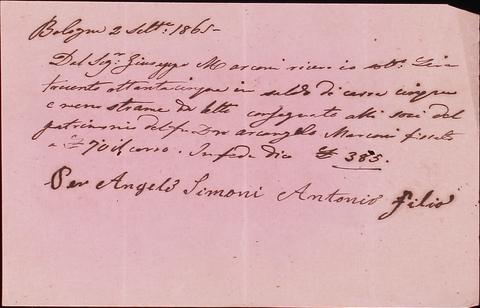 Bologna 2 Sett.e 1865-
Dal Sig.r Giuseppe Marconi ricevo io sott.o Lire
trecento ottantacinque in saldo di carra cinque
e mezzo strame da letto consegnato alli soci del
patrimonio del fu D.n Arcangelo Marconi
a £ 70 il carro. In fede dico £ 385.
Per Angelo Simoni Antonio filio